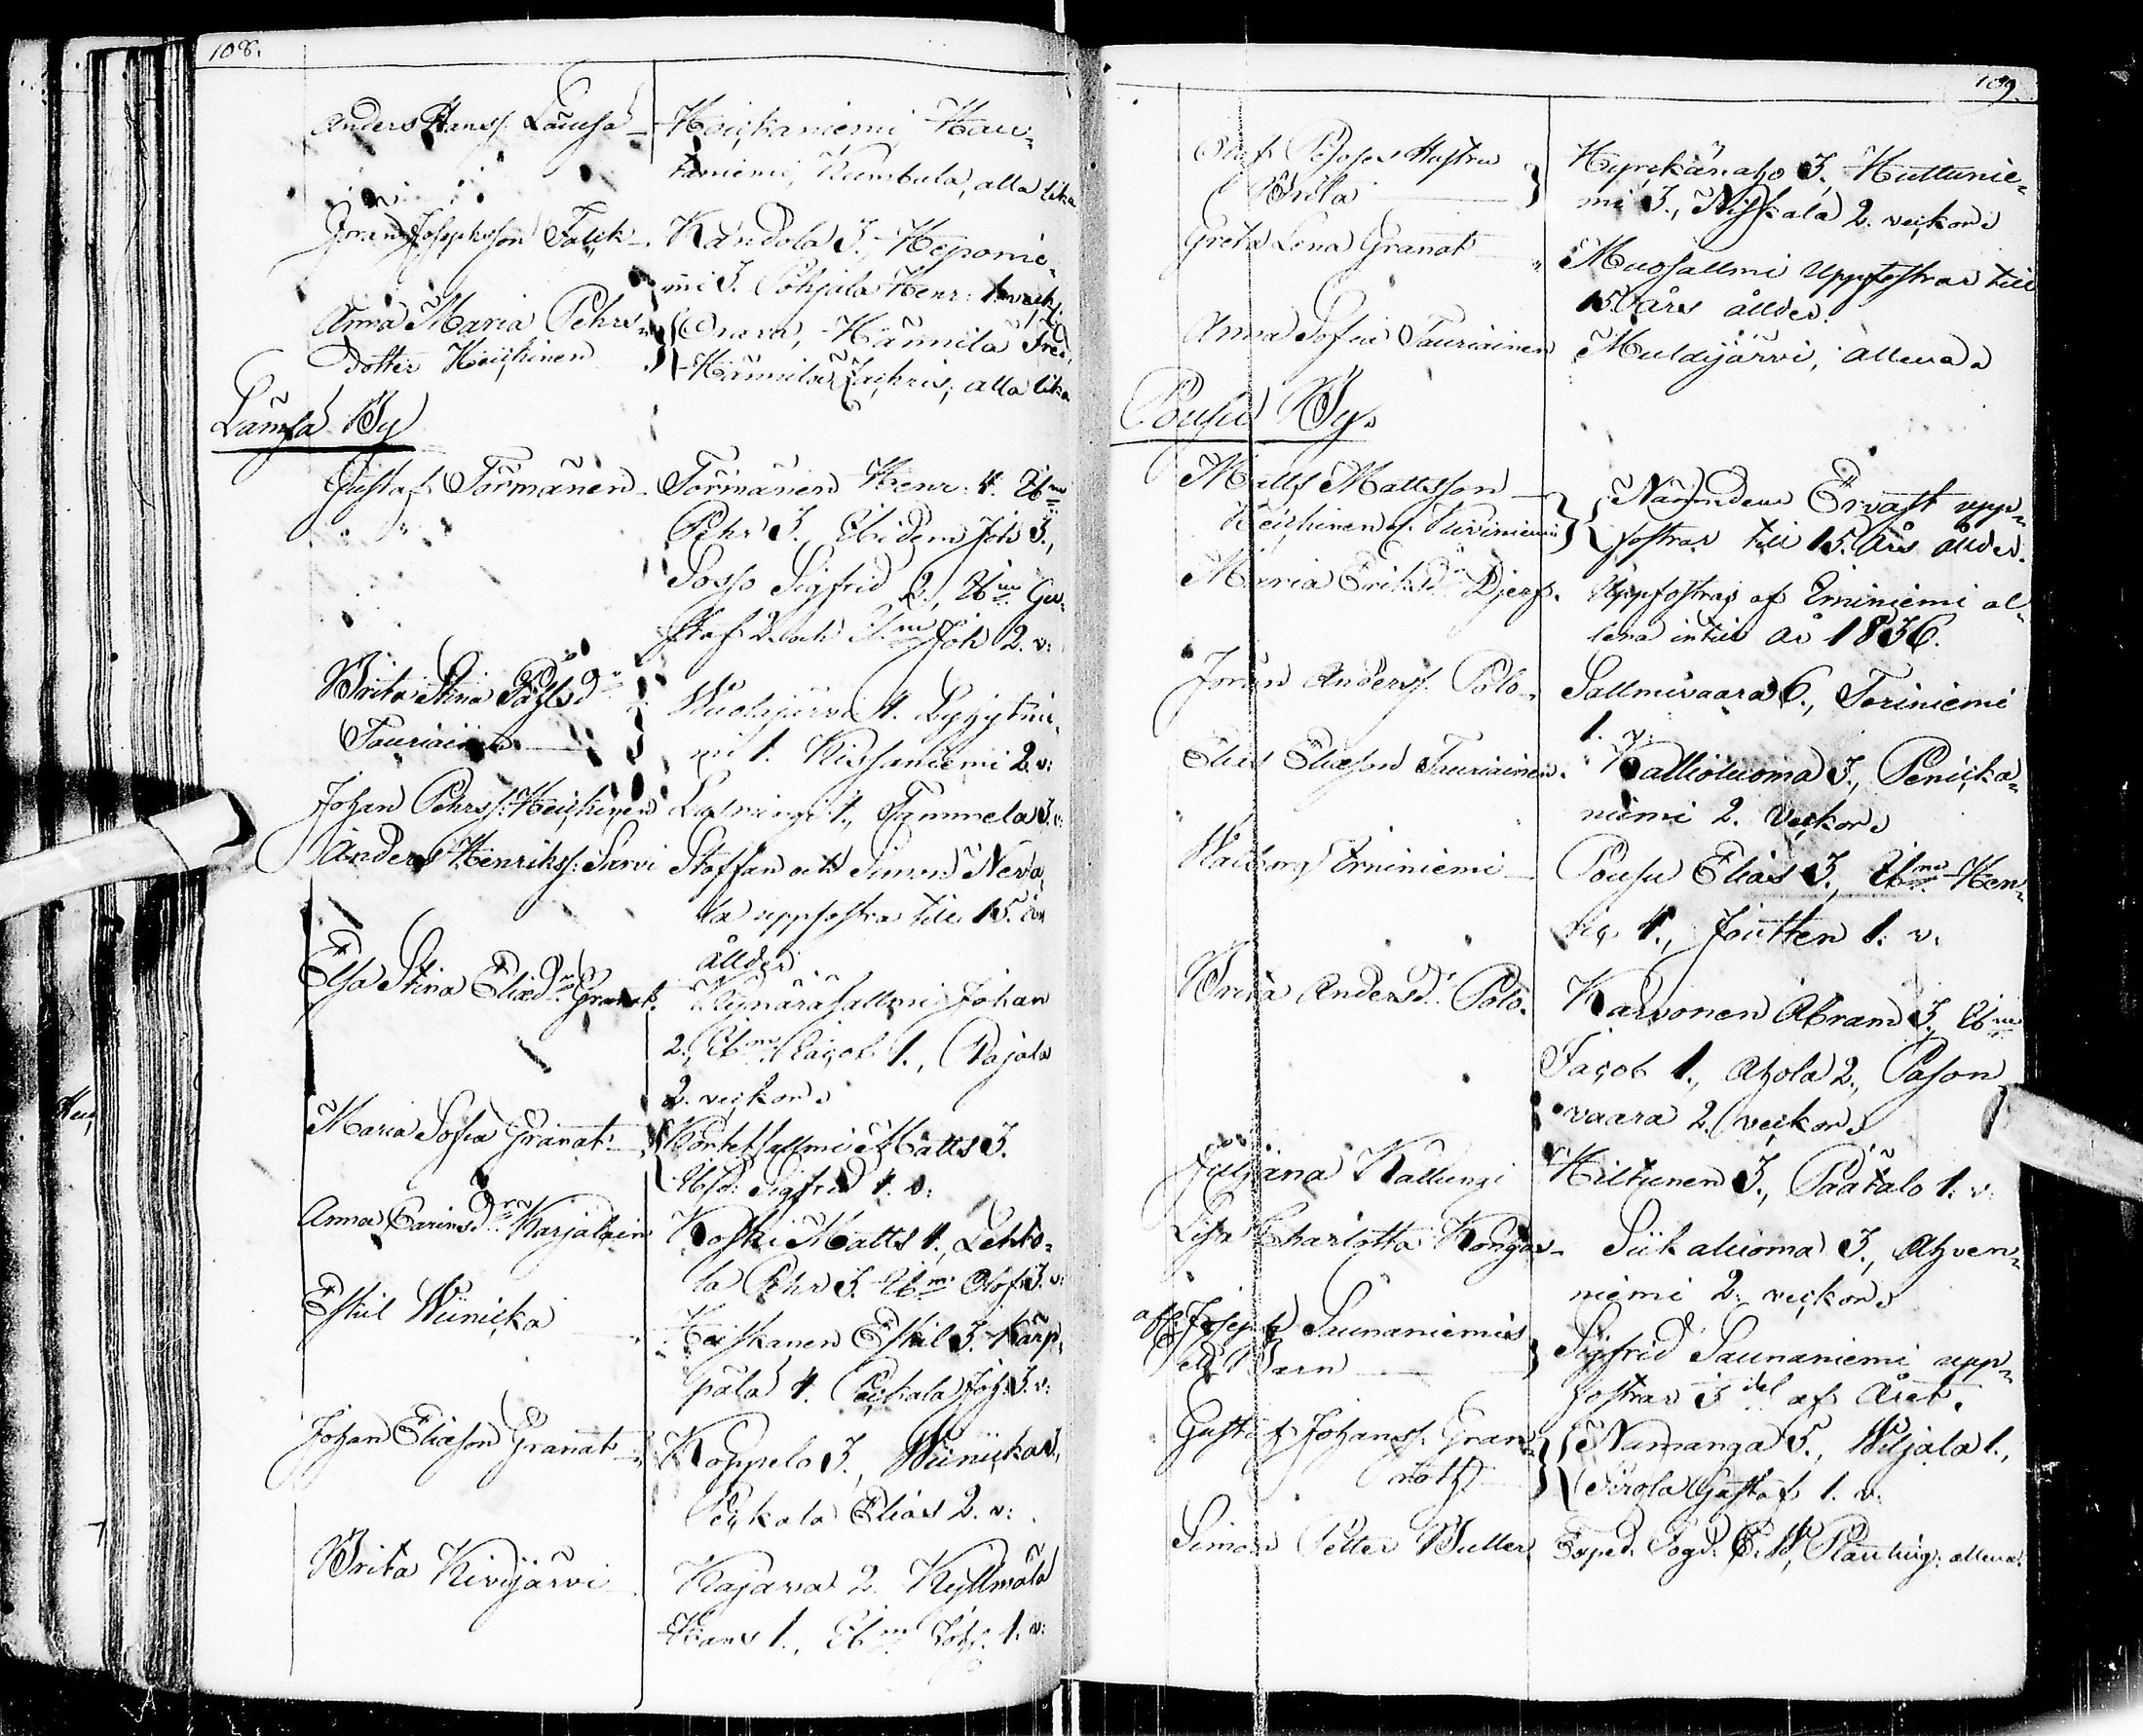 108.
Anders Hanss. Lämsä - Heickaniemi, Hau-
taniemi, Kumbula, alla lika
Göran Josephsson Falck - Kandola 3. Heponie-
mi 3. Pohjola Henr: 1. veck:
Anna Maria Pehrs- Orava, Hännilä Fred.
dotter Heickinen Hännilä Zachris, alla lika
Lämsä By
Gustaf Törmänen - Törmänen Henr: 4. Ibm
Pehr 3., Ibidem Joh 3.,
Posso Sigfrid 2., Ibm Gu-
staf 2. och Ibm Joh 2. v:
Brita Stina Påhlsdr
Tauriainen
Wuolajärvi 4.
mi 1. Kissaniemi 2. v:
Johan Pehrss. Heickinen 4., Tammela 3. v:
Anders Henrikss: Sarvi Staffan och Simon Neva-
la uppfostra till 15. års
ållder
Elsa Stina Eliædr Granat. Kynäräsallmi Johan
2., Ibm Jacob 1., Pajala
2. veckor
Maria Sofia Granat - Kortetsallmi Matts 3.
Ibid: Sigfrid 4. v:
Anna Carinsdr Karjalain Koski Matts 4., Lehto-
la Pehr 3. Ibm Olof 3. v:
Eskil Wiinicka
Heiskanen Eskil 3. Karp-
pala 4. Peckala Joh. 3. v:
Johan Eliæson Granat - Koppelo 3., Wiinicka 3.,
Peckala Elias 2. v:
Brita Kivijärvi Kajava 2. Kyllmälä
Hans 1., Ibm Joh: 1. v:
109.
Olof Pesoses Hustru
Brita
Hyrckänaho 3., Huttunie-
mi 3., Niskala 2. veckor
Greta Lena Granat Muosallmi uppfostrar till
15. års ållder.
Anna Sofia Tauriainen Muldijärvi, allena
Pousu By.
Matts Mattsson
Heickinen f. Kiviniemi
Nämndem Ervast upp-
fostrar till 15. års ållder.
Maria Eriksdr Djerf. Uppfostras af Erniniemi al-
lena intill år 1836.
Jöran Anderss. Polo - Sallmivaara 6., Toriniemi
1. v:
Elias Eliæson Tauriainen. Kallioluoma 3., Penicka-
niemi 2. veckor
Walborg Erniniemi Pousu Elias 3., Ibm Hen-
ric 4., Joutten 1. v:
Brita Andersdr Polo. Karvonen Abram 3., Ibm
Jacob 1., Ahola 2., Pason
vaara 2. veckor
Juliana Kallungi Hiltunen 3., Päätalo 1. v:
Lisa Charlotta Kongas - Siikaluoma 3., Ahven-
niemi 2. veckor
afl. Joseph Saunaniemis
ett Barn
Sigfrid Saunaniemi upp-
fostrar 3 del af Året.
Gustaf Johanss. Gran-
roth
Namanga 5., Wiljala 1.,
Pirola Gustaf 1. v:
Simon Petter Buller Exped. Fogd. E. W. Planting: allena.